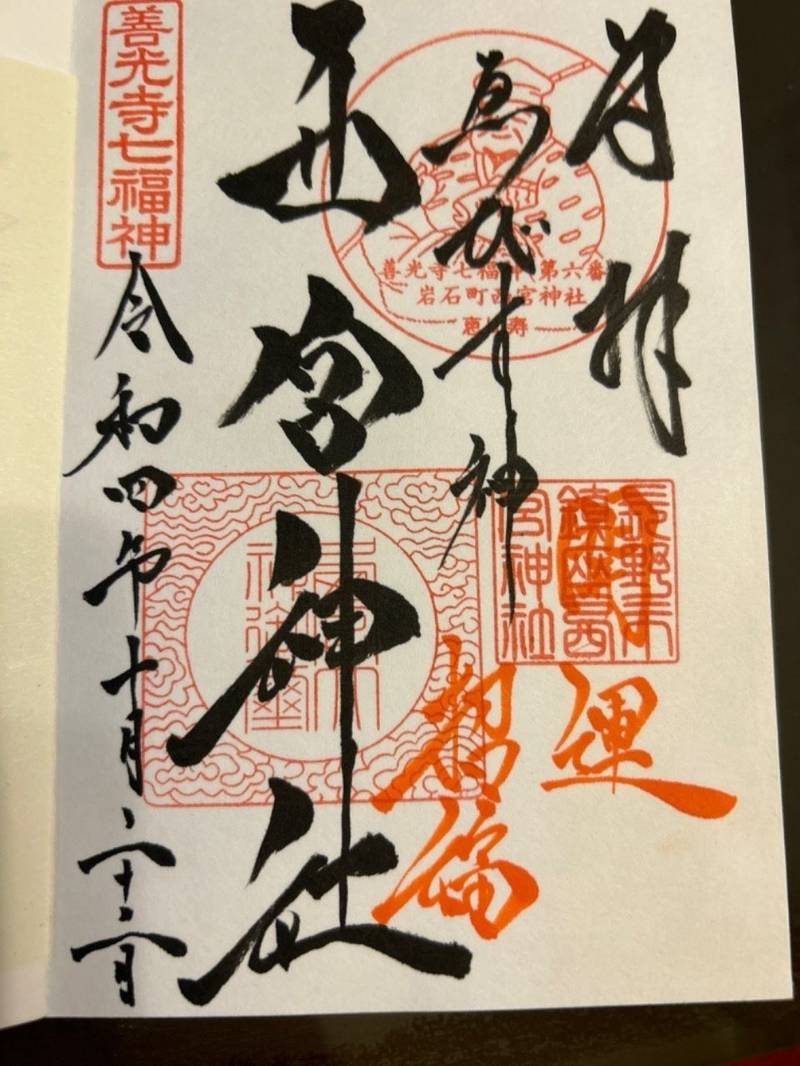 奉拝
開運
招福
ゑびす神
善光寺七福神 第六番
岩石町西宮神社
恵比寿
長野市
鎮座西
宮神社
西宮神社
善光寺七福神
令和四年十月二十二日